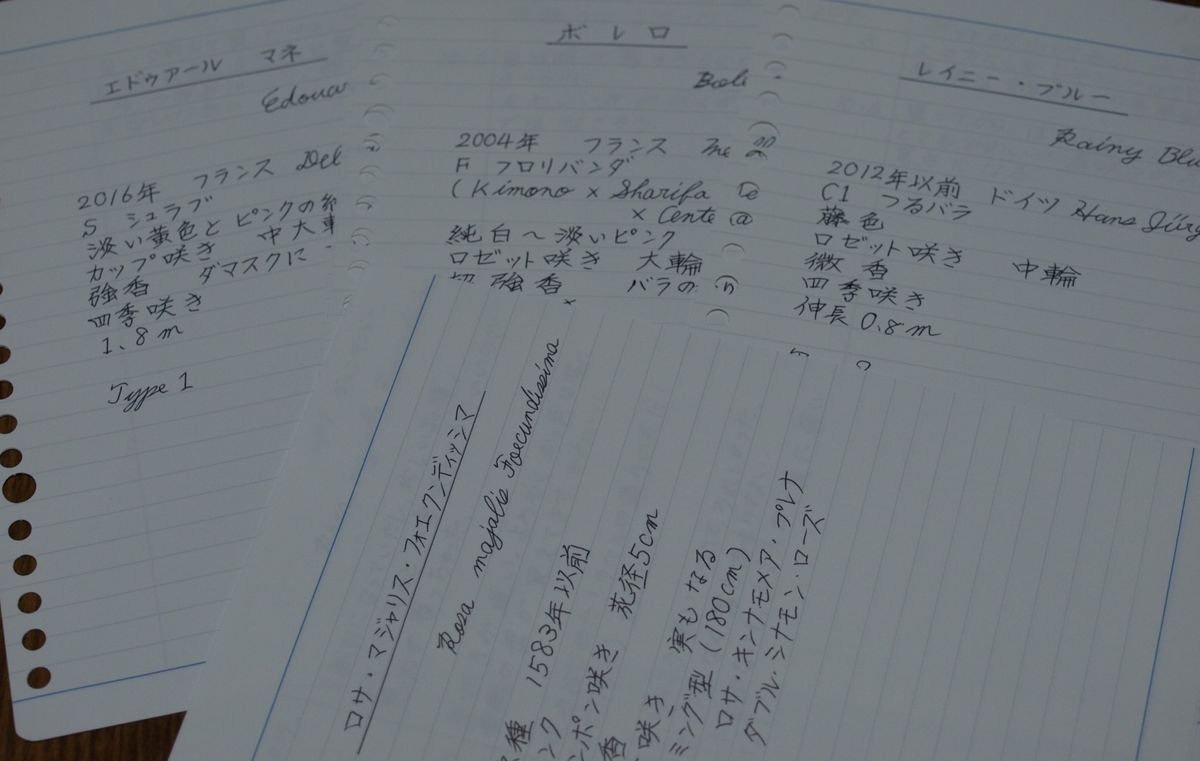 エドゥアール マネ
Edouar
2016年 フランス Del
S シュラブ
淡い黄色とピンクの
カップ咲き 中大
強香 ダマスクに
四季咲き
1.8m
Type 1
ボレロ
2004年 フランス
F フロリバンダ
(Kimono × Sharifa
× Cente
純白～淡いピンク
ロゼット咲き 大輪
強香 バラの
レイニー・ブルー
Rainy Blu
2012年以前 ドイツ Hans Jürg
Cl つるバラ
藤色
ロゼット咲き 中輪
微香
四季咲き
伸長 0.8m
ロサ・マジャリス・フォエクンディッシマ
Rosa majalis Foecundissima
種 1583年以前
ンク
ンポン咲き 花径5cm
香
咲き 実もなる
ミング型(180cm)
ロサ・キンナモメア・プレナ
ダブル・シナモン・ローズ